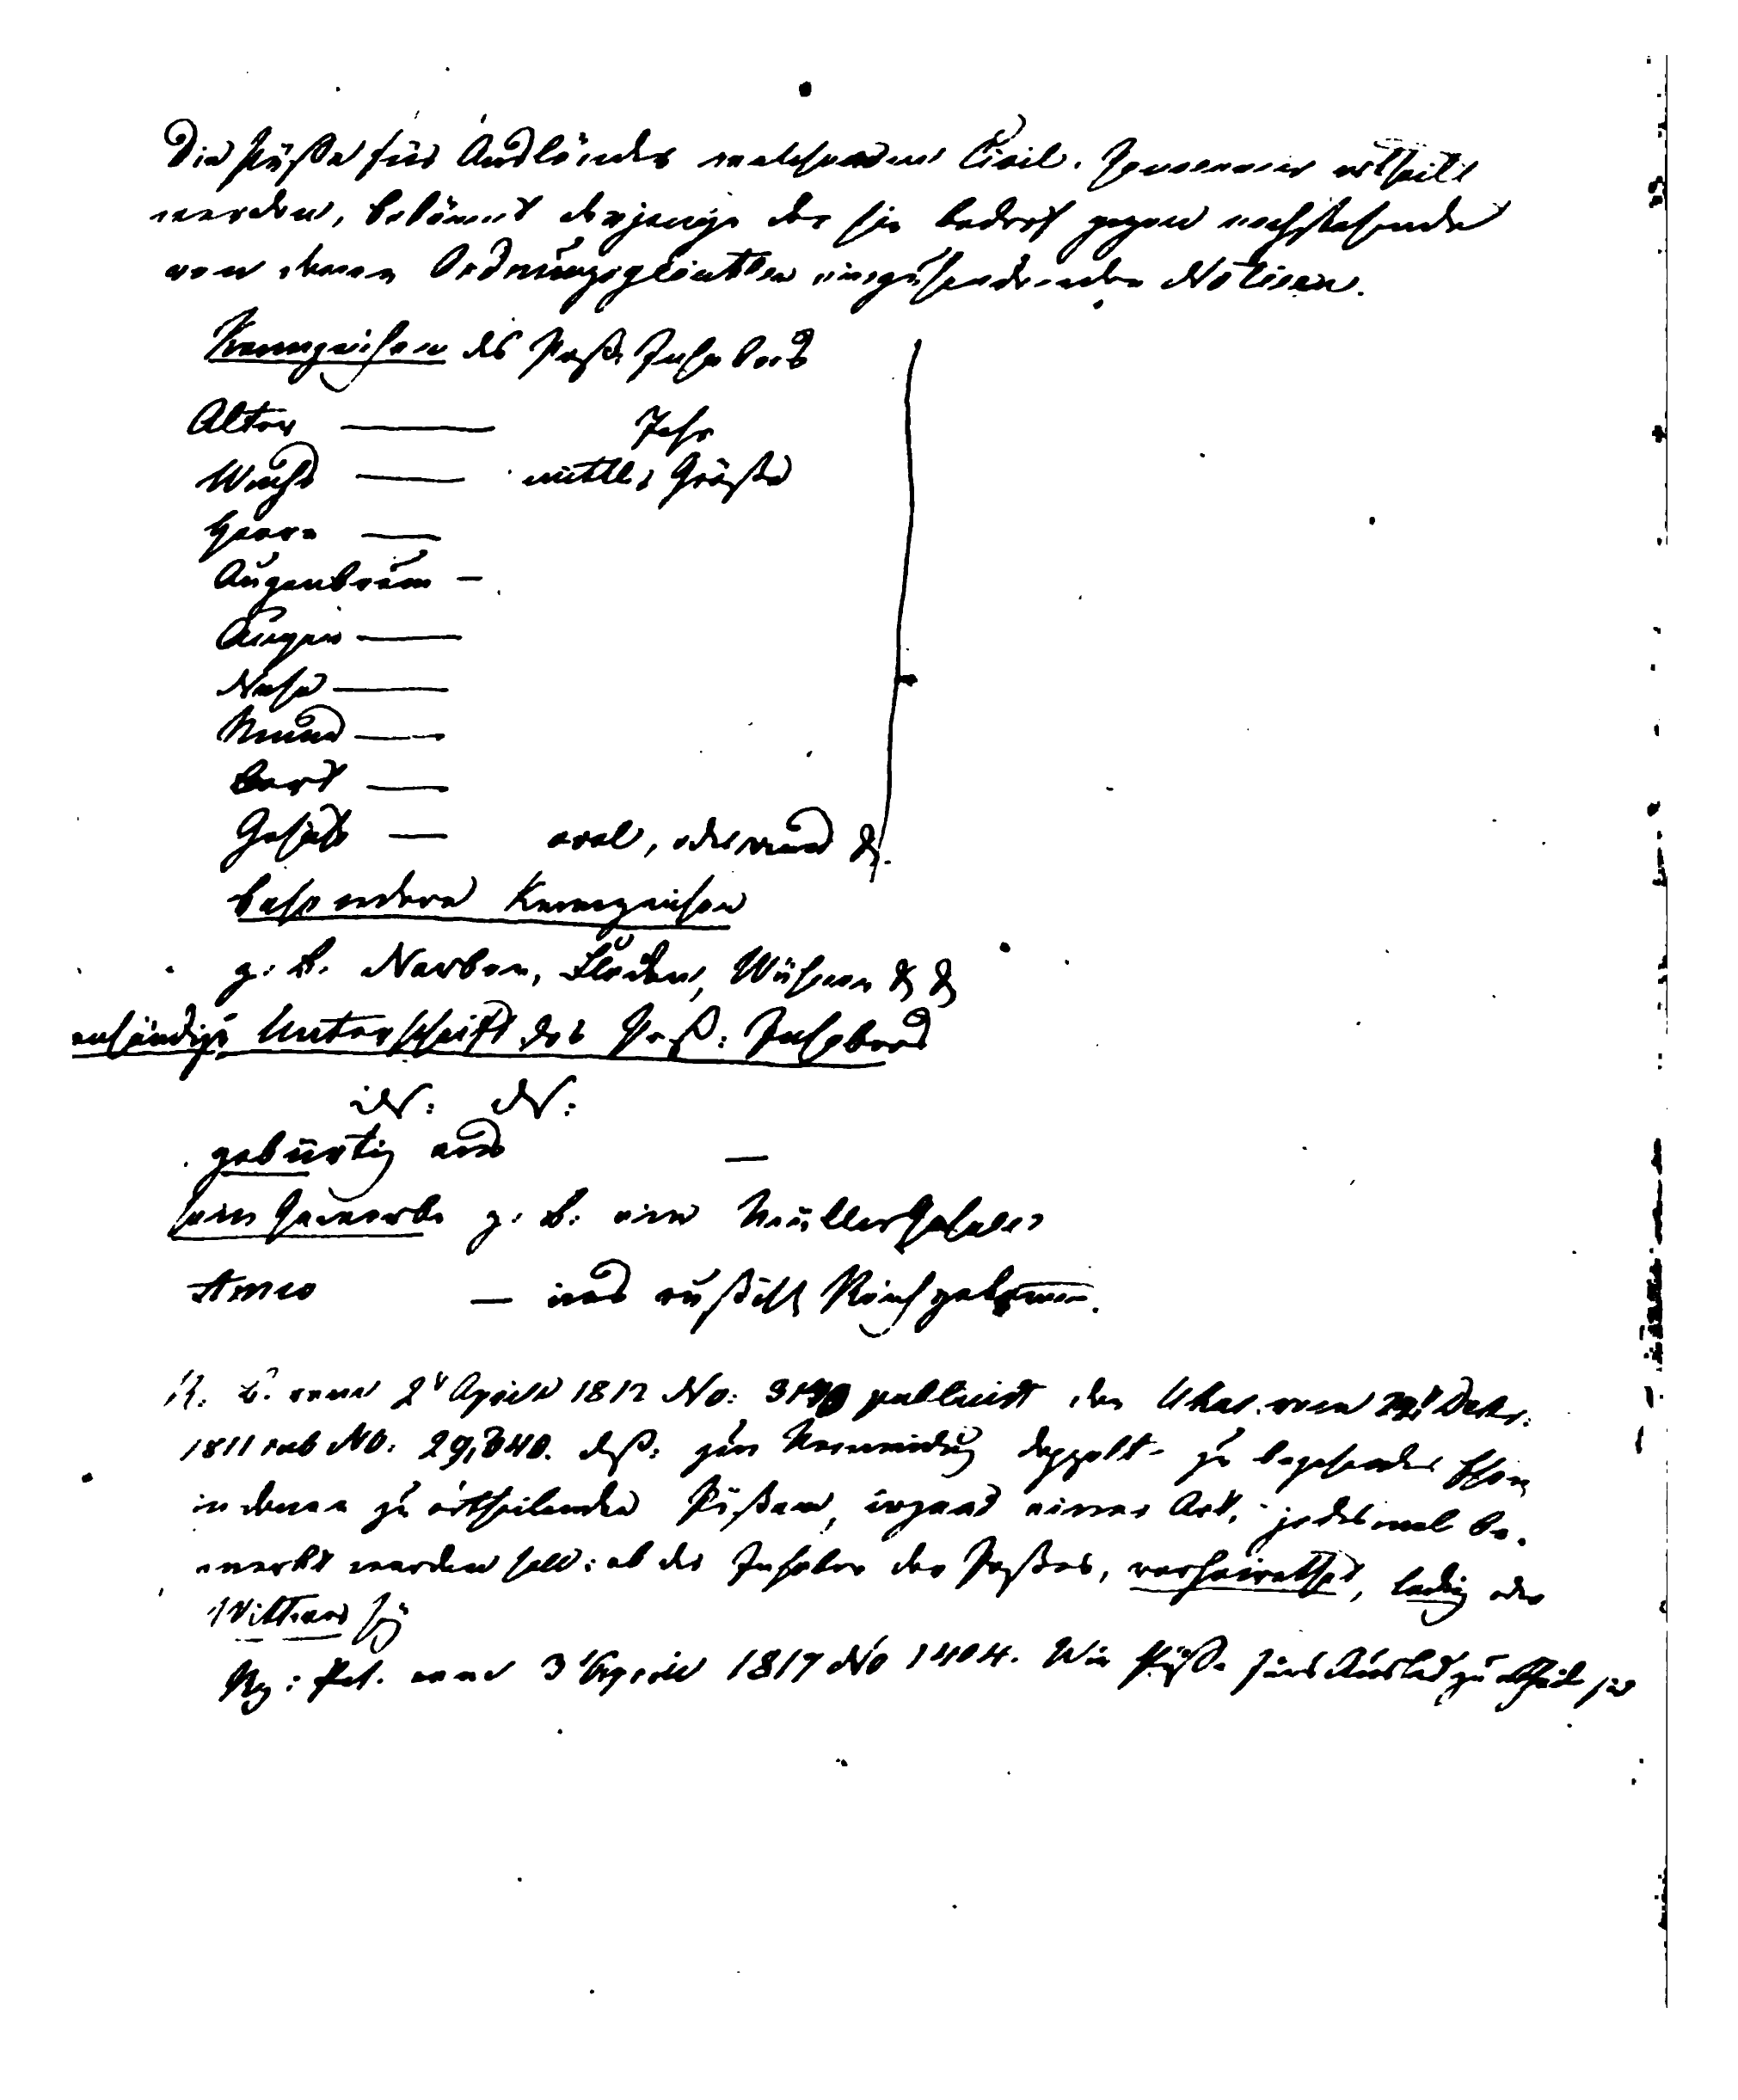 Die Päße für Ausländer welche vom Civil. Gouverneur ertheilt
werden, bekömmt derjenige der sie bedarf gegen nachstehende
von denen Ordnungsgerichten einzusendenden Notizen.
Kennzeichen des Paß. Inhabers
Alter — Jahr
Wuchs — mittler Größe
Haare —
Augenbraun —
Augen —
Nase —
Mund —
Bart —
Gesicht — oval, oder rund &.
besondere Kennzeichen
z. B. Narben, Flecken, Wühnen & &
enhändige Unterschrift des Paß: Inhabers
N: N:
gebürtig aus —
sein Gewerbe z. B. ein Müller Geselle
Anno — ins rußisch Reich gekommen.
R. B. vom 2t Aprill 1812 No: publicirt der Ukas vom Decbr:
1811 sub No: 29,840. daß: zur Vermeidung doppelt zu begehender Ehen
in denen zu ertheilenden Päßen, irgend einer Art, jedesmal be-
merkt werden soll: ob der Inhaber des Paßes, verheirathet, ledig oder
Wittwer sey
Rg: Pat. vom 3 Aprill 1817 No 1404. Wie Päße fürs Ausland zu ertheil